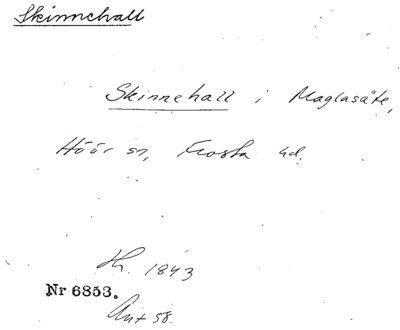 Skinnehall
Skinnehall i Maglasäte,
Höör sn, Frosta hd.
1843
Nr 6853.
Ant 58.